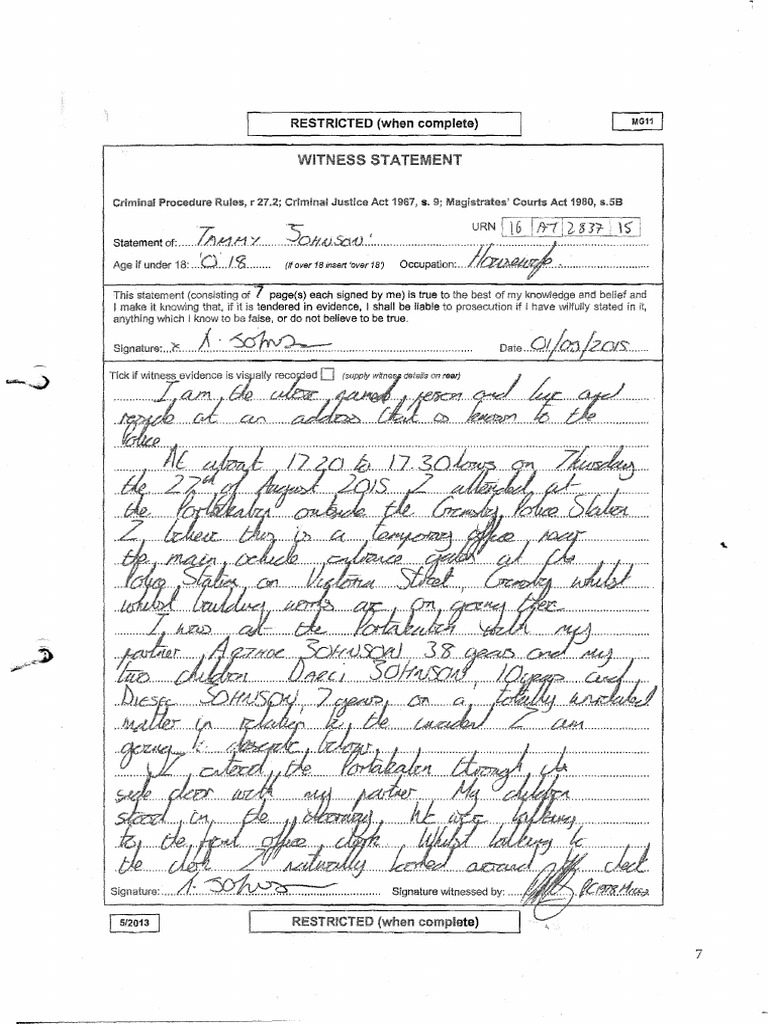 RESTRICTED (when complete)
MG11
WITNESS STATEMENT
Criminal Procedure Rules, r 27.2; Criminal Justice Act 1967, s. 9; Magistrates' Courts Act 1980, s.5B
URN 16 A7 2837 15
Statement of: TAMMY JOHNSON
Age if under 18: O 18 (if over 18 insert 'over 18') Occupation: Housewife
This statement (consisting of 7 page(s) each signed by me) is true to the best of my knowledge and belief and
I make it knowing that, if it is tendered in evidence, I shall be liable to prosecution if I have wilfully stated in it,
anything which I know to be false, or do not believe to be true.
Signature: x Date 01/09/2015
Tick if witness evidence is visually recorded (supply witness details on rear)
I am the above named person and live and
reside at an address that is known to the
Police
At about 17.20 to 17.30 hours on Thursday
the 27th of August 2015 I attended at
the Portakabin outside the Grimsby Police Station
I believe this is a temporary office near
the main vehicle entrance gates at the
Police Station on Victoria Street Grimsby whilst
whilst building works are on going there
I was at the Portakabin with my
partner JOHNSON 38 years and my
two children DARCI JOHNSON 10 years and
DIESEL JOHNSON 7 years, on a totally unrelated
matter in relation to the incident I am
going to describe below.
I entered the Portakabin through the
side door with my partner My children
stood in the doorway, We were talking
to the front office clerk Whilst talking to
the clerk I naturally looked around to check
Signature: Signature witnessed by: PC
5/2013
RESTRICTED (when complete)
7